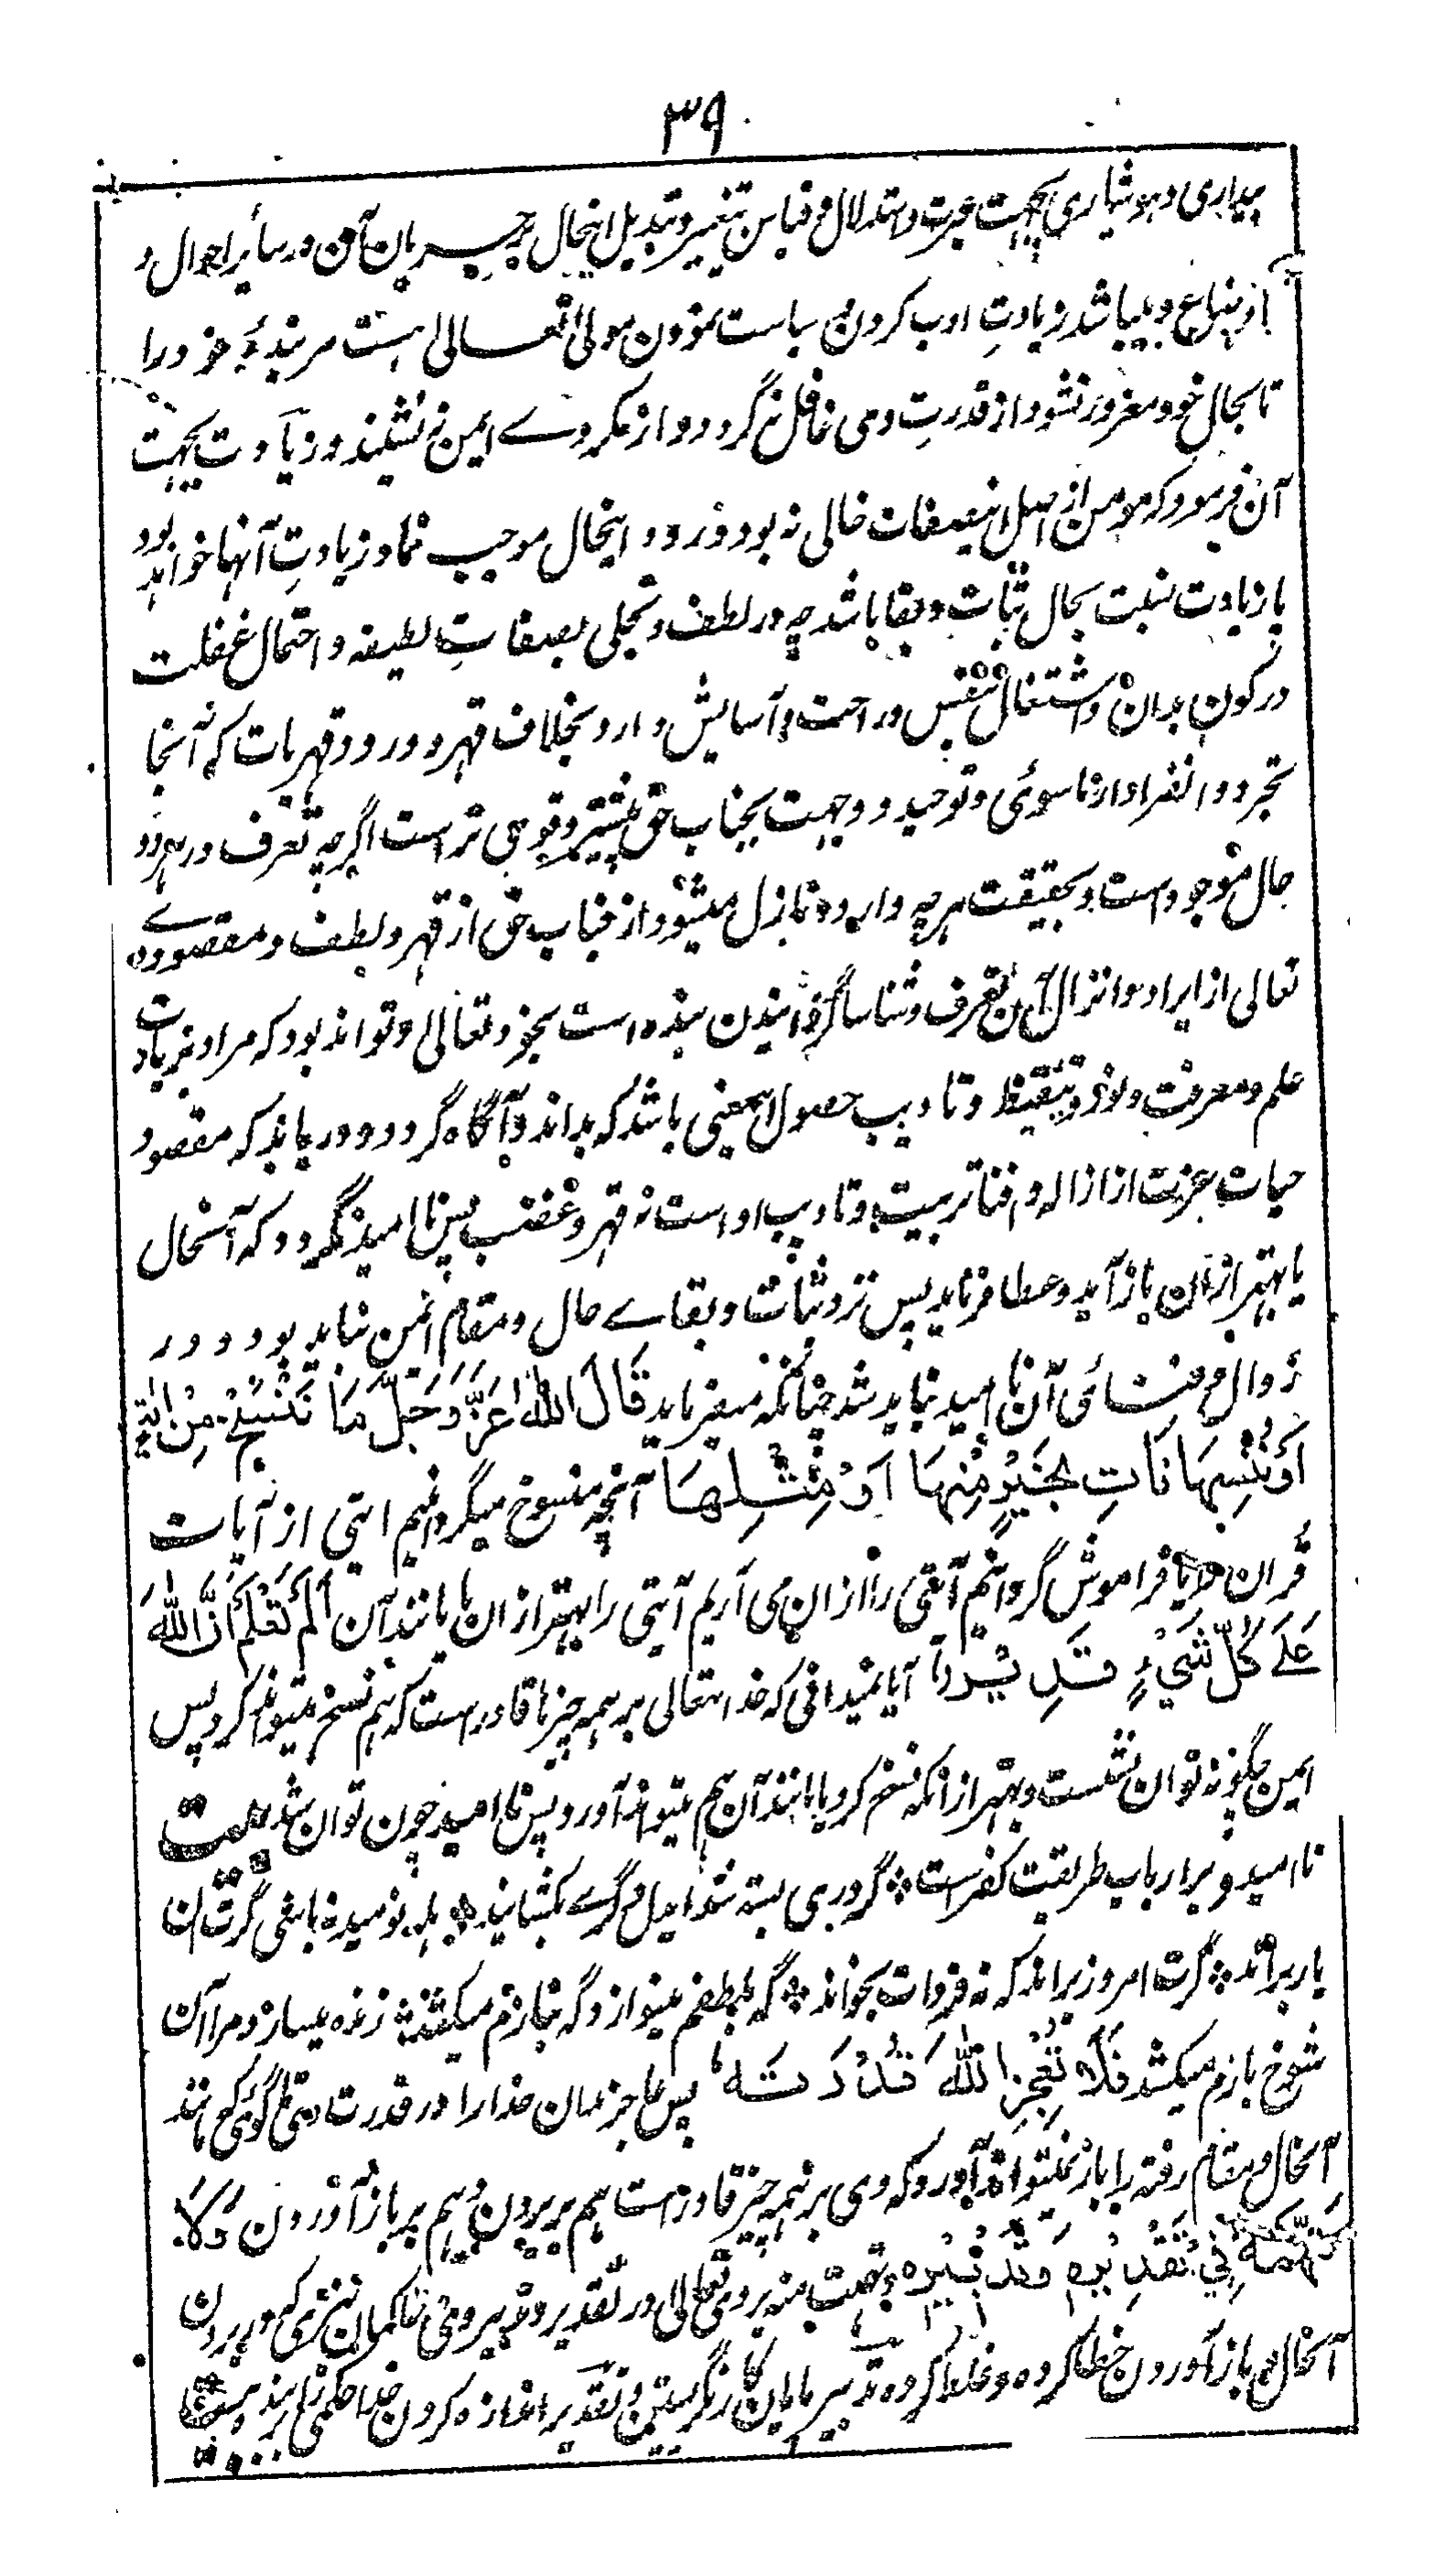 ۳۹
بیداری و هوشیاری بجهت عبرت و استدلال و قیاس تغییر و تبدیل اینحال بر جریان آن در سائر احوال و
از نیاع و بلیا شد زیادتِ ادب کردن و سیاست نمودن مولیٰ تعالیٰ است مر بندهٔ خود را
تا بحال خود مغرور نشود از قدرتِ وی غافل نگردد و از مکر وے ایمن نه نشیند و زیادت بجهت
آن فرمود که مومن از اصل اینصفات خالی نه بود و ورود اینحال موجب نما و زیادتِ آنها خواهد بود
یا زیادت نسبت بحال ثبات و بقا باشد چه در لطف و تجلی بصفاتِ لطیفه و احتمال غفلت
در کون بدان و اشتغالِ نفس در راحت و آسایش دارد بخلاف قهر و ورود قهریات که آنجا
تجرد و انفراد از ماسوئی و توحید و وجهت بجناب حق بیشتر و قوی تر است اگرچه تعرف در هر دو
حال موجود است و بحقیقت هرچه وارد و نازل میشود از جناب حق از قهر و لطف و مقصود وے
تعالی از ایراد و انزال آن تعرف و شناسا گردانیدن بنده است بخود تعالیٰ و تواند بود که مراد بزیادت
علم و معرفت و نور و تیقیظ و تادیب حصول اینمعنی باشد که بداند و آگاه گردد و دریابد که مقصود
حیات عزت از ازاله و افنا تربیت و تادیب او است نه قهر و غضب پس نا امید نگردد که آنحال
یا بهتر ازان باز آید و عطا فرماید پس نزد ثبات و بقاے حال و مقام ایمن نباید بود و در
زوال و فنائی آن نا امید نباید شد چنانکه میفرماید قَالَ اللهُ عَزَّ وَجَلَّ مَا نَنْسَخْ مِنْ اٰیَةٍ
اَوْ نُنْسِهَا نَاْتِ بِخَیْرٍ مِّنْهَا اَوْ مِثْلِهَا آنچه منسوخ میگردانیم ایتی از آیات
قرآن و یا فراموش گردانیم آیتی را ازان می آریم آیتی را بهتر ازان یا مانند آن اَلَمْ تَعْلَمْ اَنَّ اللهَ
عَلٰے کُلِّ شَیْءٍ قَدِیْرٌ آیا نمیدانی که خدا تعالی بر همه چیز ها قادر است که هم نسخ میتواند کرد پس
ایمن چگونه توان نشست و بهتر ازانکه نسخ کرد یا مانند آن هم میتواند آورد پس نا امید چون توان شد بیت
ناامیدی بر ارباب طریقت کفر است ؞ گر دری بسته شد ایدل دگرے بکشایند ؞ بله نومید نباشی گرت آن
یار براند ؞ گرت امروز براند که نه فردات بخواند ؞ گه بلطفم مینوازد گه بنازم میکشد ؞ زنده میسازد مرا آن
شوخ بازم میکشد فَلَا تُعْجِزِ اللهَ قُدْرَتَهٗ پس عاجز مدان خدا را در قدرت وی گوئی که
آنحال و مقام رفته را باز نمیتواند آورد که وی بر همه چیز قادر است هم بر بردن و هم بر باز آوردن وَلَا
تَتَّهِمْهُ فِیْ تَقْدِیْرِهٖ وَتَدْبِیْرِهٖ و تهمت منه بر وی تعالی در تقدیر و تدبیر وی تا گمان نبری که در بردن
آنحال و باز آوردن خطا کرده و غلط کرده تدبیر پایان کار نگریستن و تقدیر اندازه کردن خدا